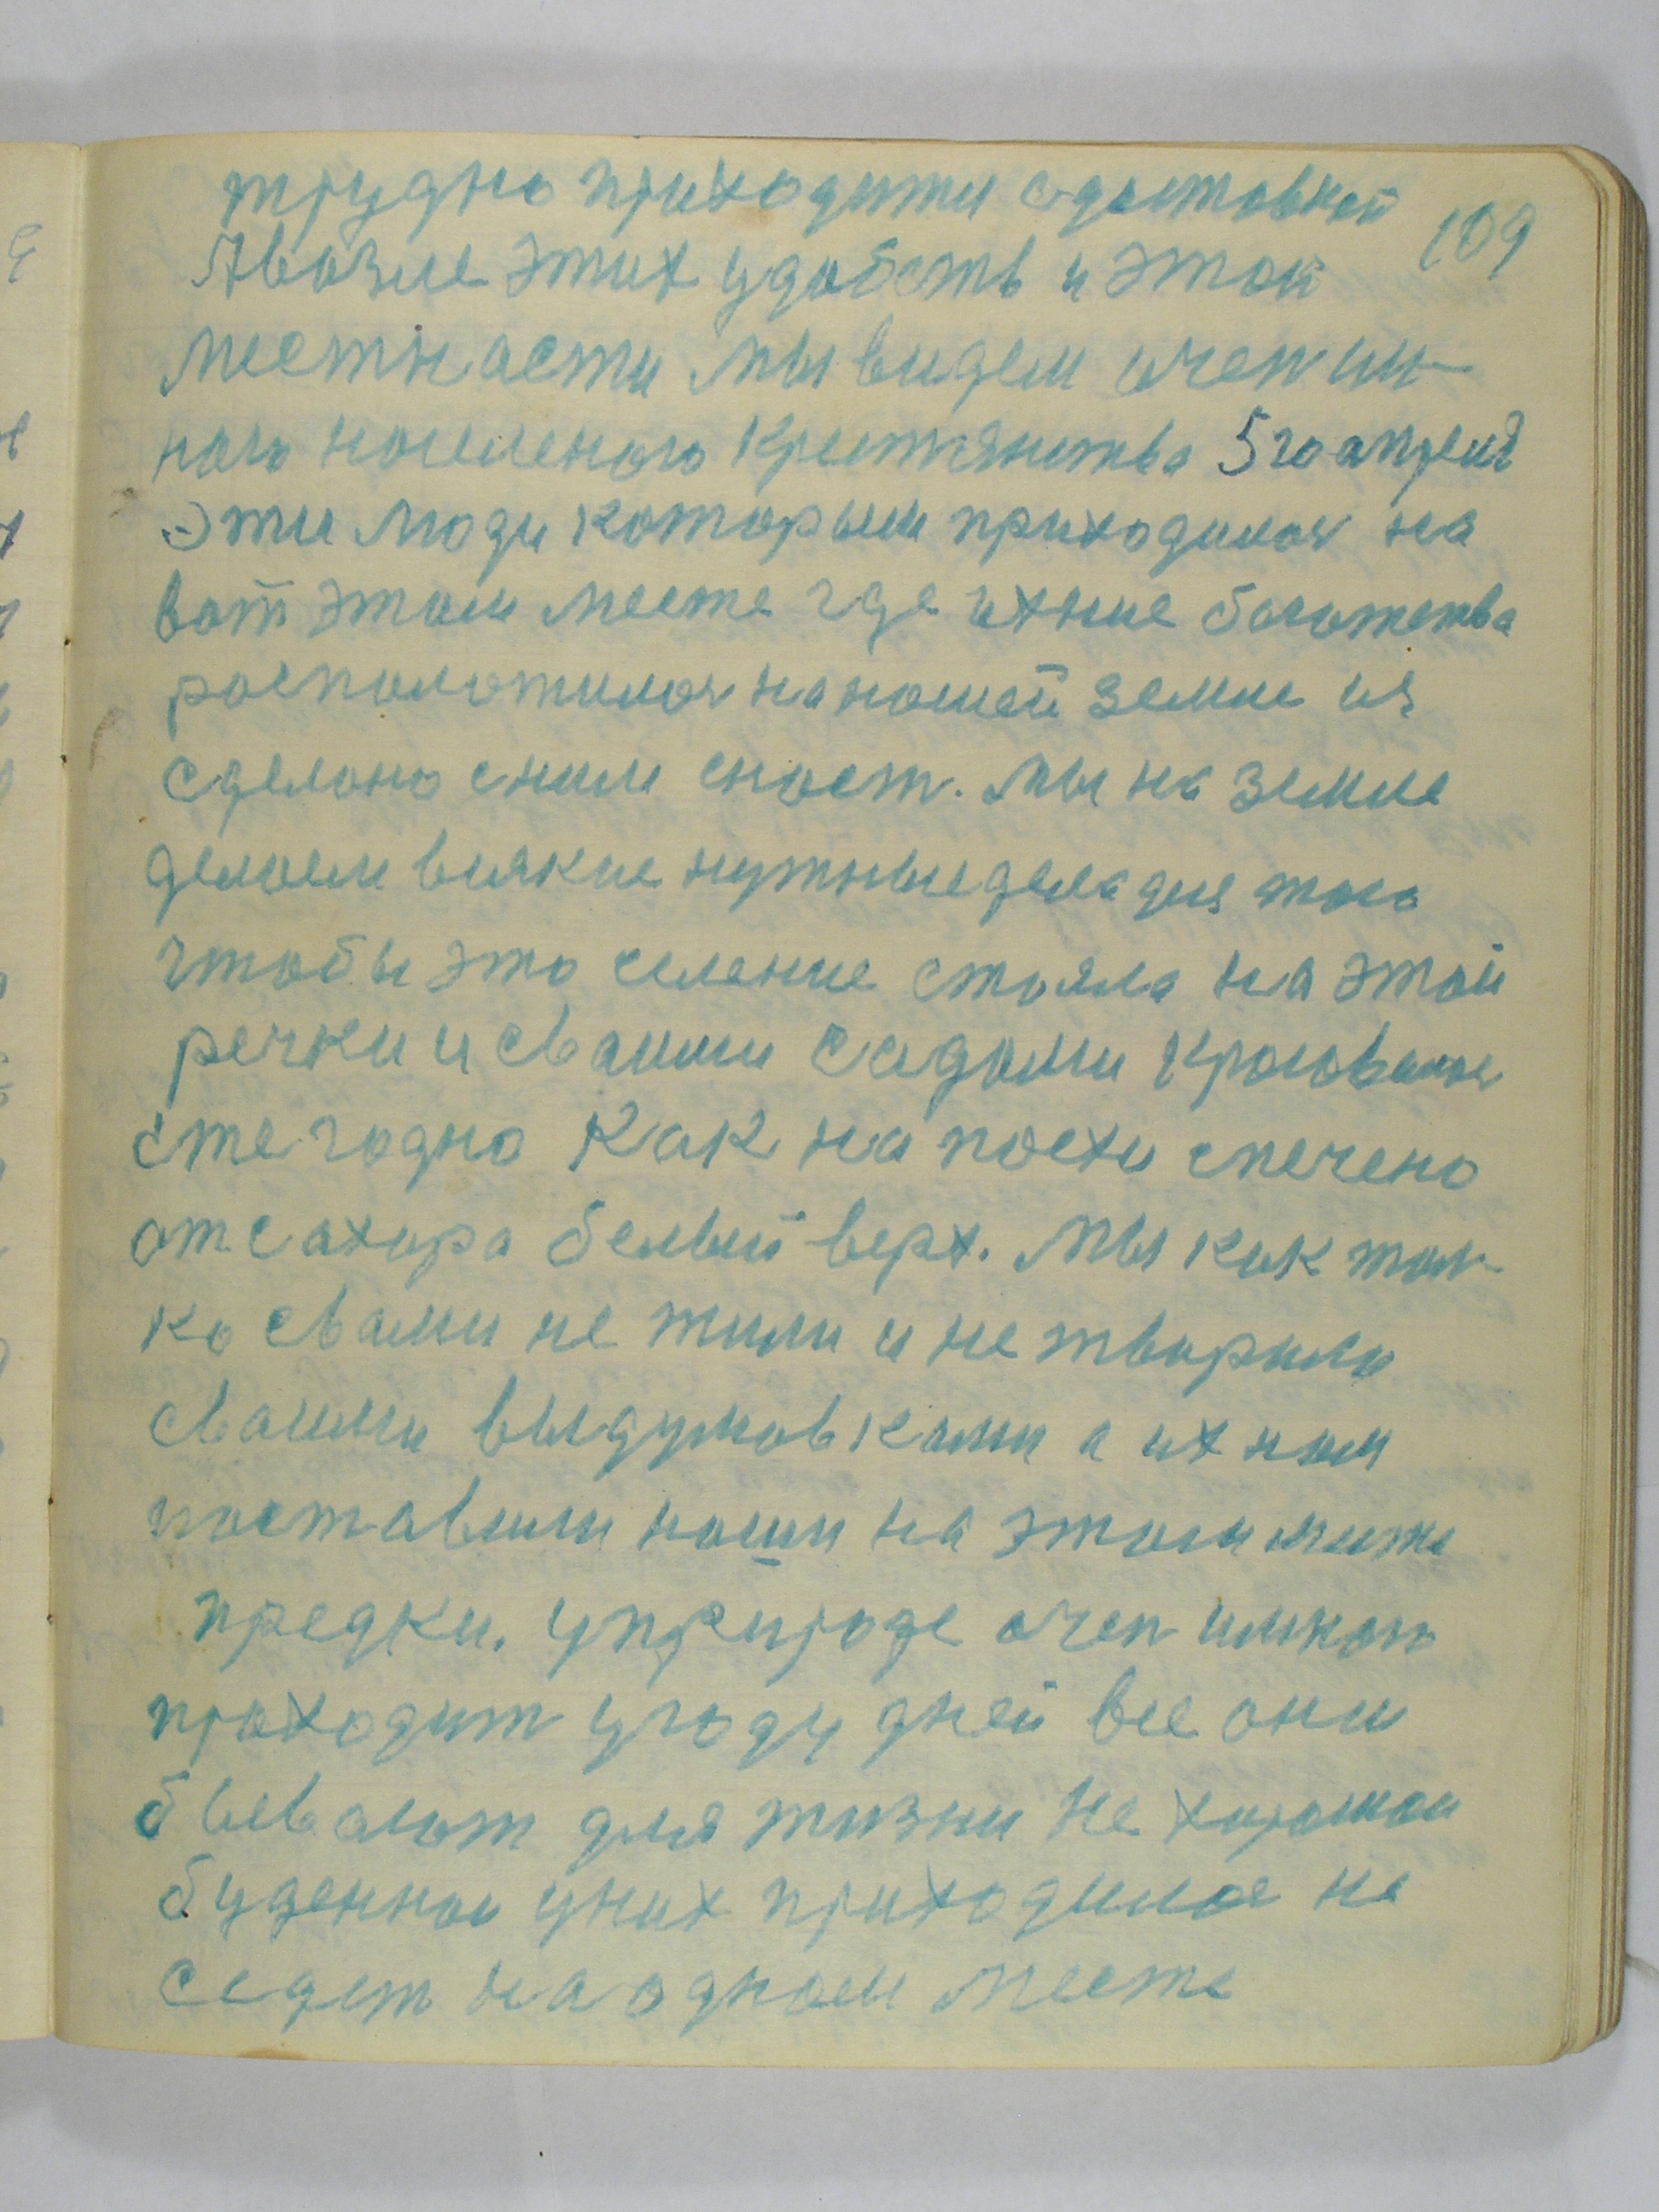 трудно приходити с доставкой
109
Авозле этих удобств и этой
местнасти мы видем очен мн-
ного носеленого крестянства 5 го апреля
Эти люди которыми приходилос на
вот этом месте где ихние богатства
росположилос на нашей земле из
сделано сними счост. Мы на земле
делоем всякие нужные дела для того
чтобы это селение стояла на этой
речки и сваими садами красовалос
ежегодно как на посхи спечено
от сахора белый верх. Мы как тол-
ко свами не жили и не творили
сваими выдумовками а их нам
поставили наши на этом месте
предки. у природе очен много
проходит угоду дней все они
бывают для жизни не хорошои
буденной у них приходилос не
седет на одном месте